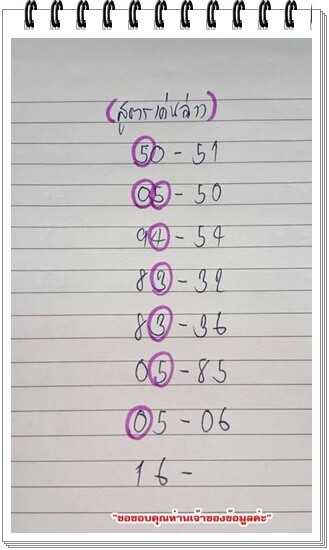 (สูตรเด่นล่าง)
50 - 51
05 - 50
94 - 54
83 - 32
83 - 36
05 - 85
05 - 06
16 -
"ขอขอบคุณท่านเจ้าของข้อมูลค่ะ"